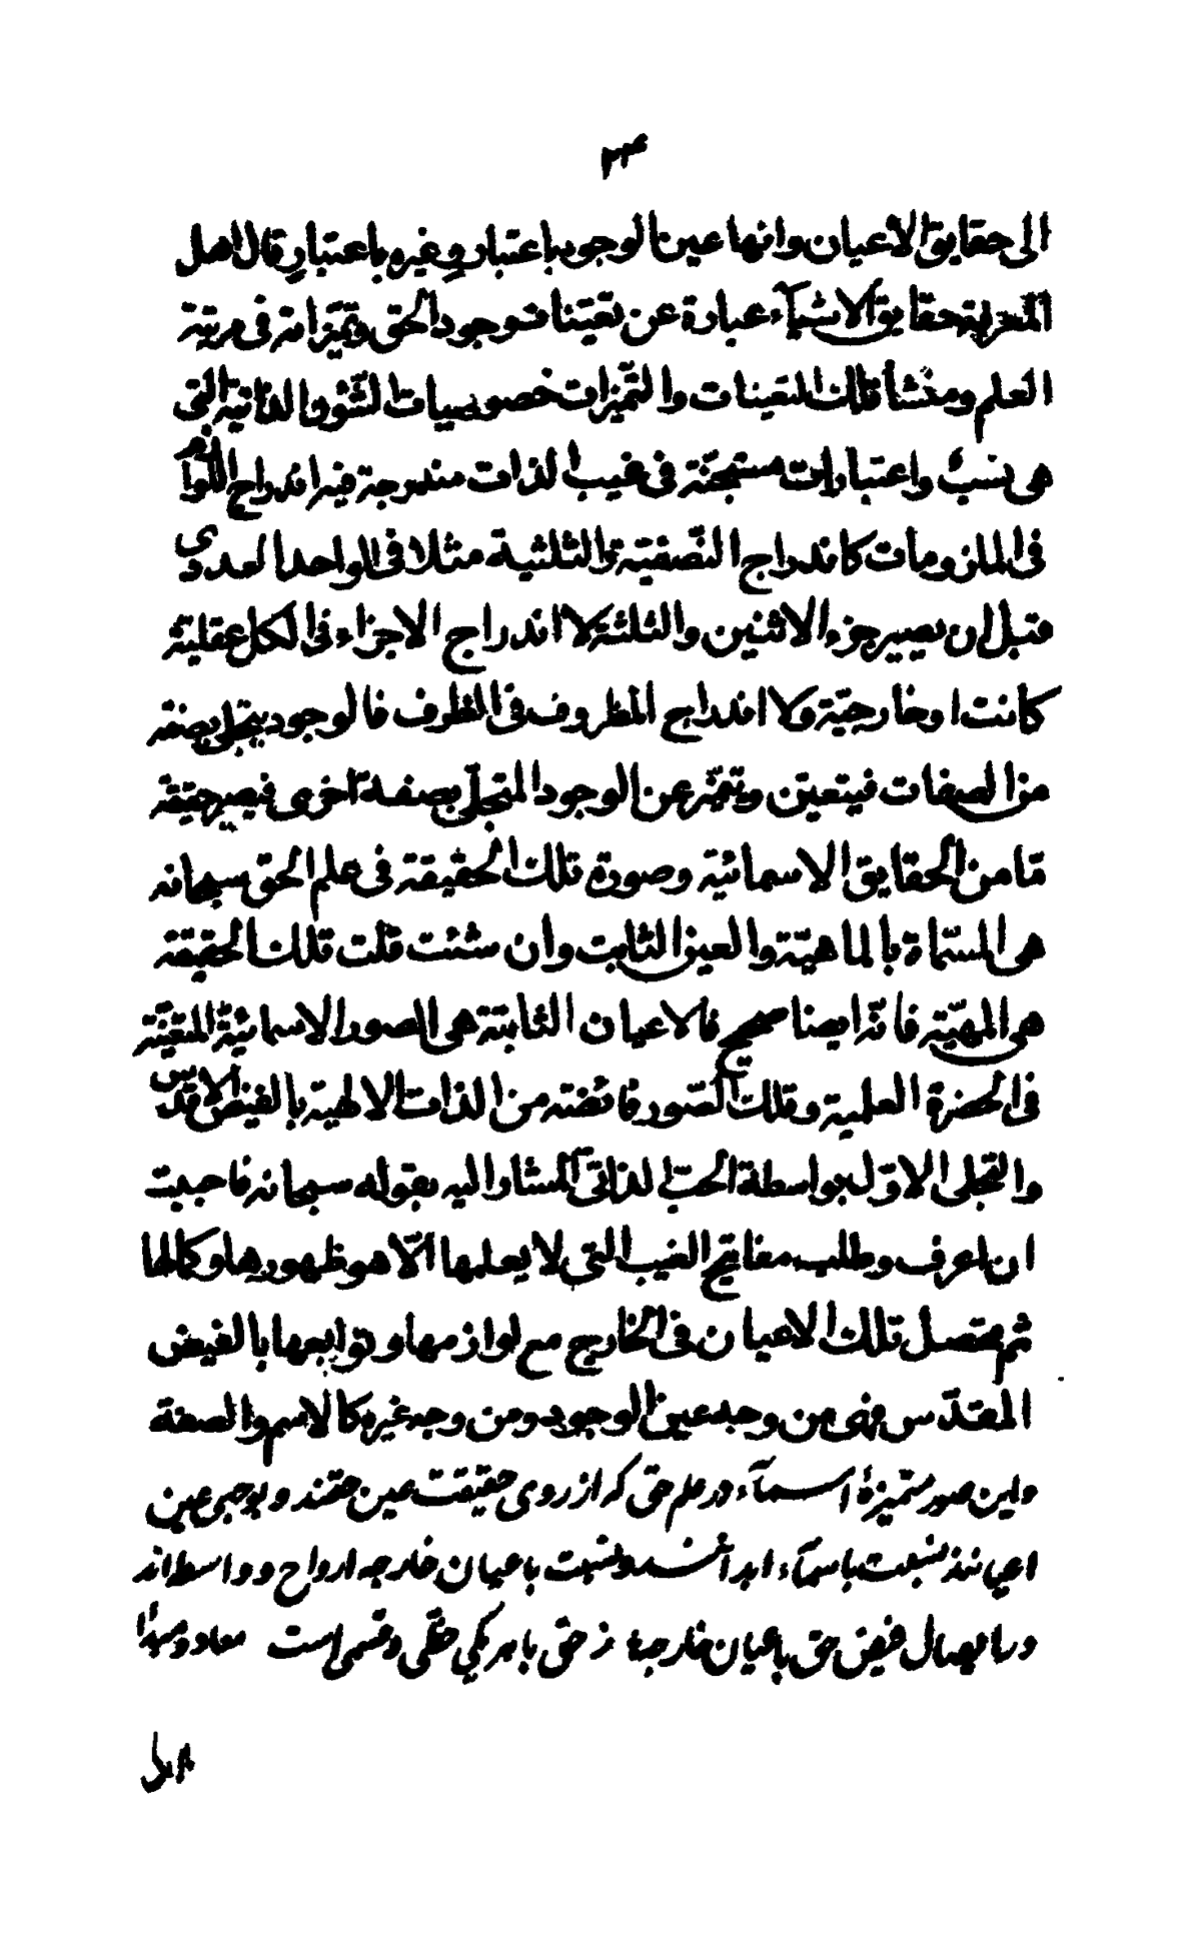 ٢٣٤
الى حقايق الاعيان وانها عين الوجود باعتبار وغيره باعتبار قال اهل
المعرفة حقايق الاشيآء عبارة عن تعينات وجود الحق وتميزاته فى مرتبة
العلم ومنشأ تلك التعينات والتميّزات خصوصيات الشّؤن الذاتية التى
هى نسب واعتبارات مستجنّة فى غيب الذات مندرجة فيه اندراج اللوازم
فى الملزومات كاندراج النّصفية والثلثية مثلا فى الواحد العددى
قبل ان يصير جزء الاثنين والثلثة لا اندراج الاجزاء فى الكل عقلية
كانت او خارجيّة ولا اندراج المظروف فى الظرف فالوجود يتجلى بصفة
من الصفات فيتعين ويتميّز عن الوجود المتجلّى بصفة اخرى فيصير حقيقة
مّا من الحقايق الاسمائية وصورة تلك الحقيقة فى علم الحق سبحانه
هى المسمّاة بالماهيّة والعين الثابت وان شئت قلت تلك الحقيقة
هى المهيّة فانّه ايضا صحيح فالاعيان الثابتة هى الصور الاسمائيّة المتعيّنة
فى الحضرة العلمية وتلك الصّور فائضة من الذات الالهية بالفيض الاقدس
والتجلى الاوّل بواسطة الحبّ الذاتى المشار اليه بقوله سبحانه فاحببت
ان اعرف وطلب مفاتيح الغيب التى لا يعلمها الّا هو ظهورها وكمالها
ثم يحصل تلك الاعيان فى الخارج مع لوازمها وتوابعها بالفيض
المقدّس فهى من وجه عين الوجود ومن وجه غيره كالاسم والصفة
واين صور متميزهٔ اسمآء در علم حق كه از روى حقيقت عين حقند و بوجهى عين
اعيانند بنسبت باسمآء ابدانند و بنسبت باعيان خارجه ارواح و واسطه‌اند
در ايصال فيض حق باعيان خارجه از حق با هر يكى حظّى و قسمى است معاد و مبدأ